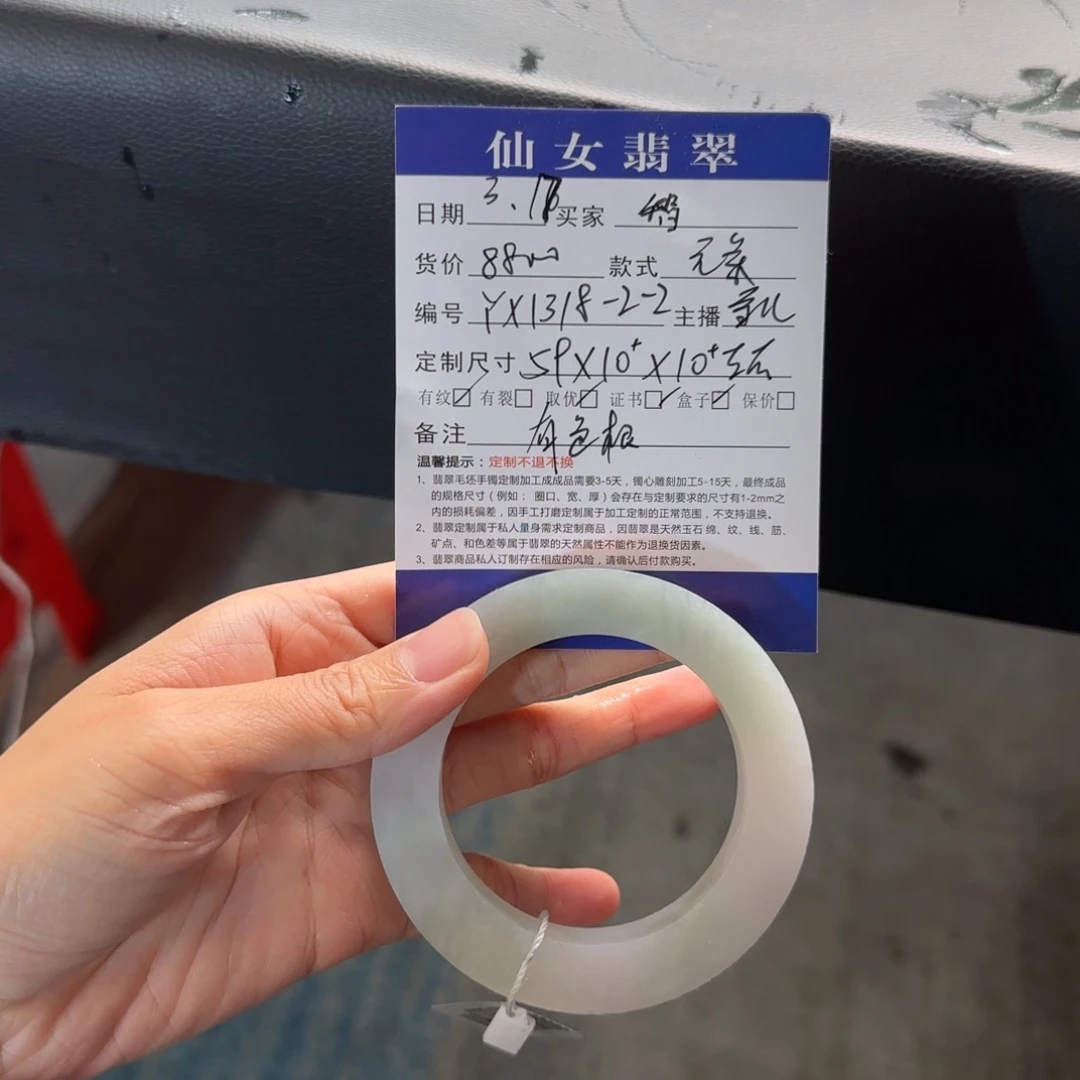 仙女翡翠
日期 3.17 买家
货价 8800 款式 元条
编号 YX1318-2-2 主播
定制尺寸 59X10⁺X10⁺左右
有纹☑ 有裂☐ 取优☑ 证书☑ 盒子☑ 保价☐
备注 有色根
温馨提示：定制不退不换
1、翡翠毛坯手镯定制加工成成品需要3-5天，镯心雕刻加工5-15天，最终成品
的规格尺寸（例如： 圈口、宽、厚）会存在与定制要求的尺寸有1-2mm之
内的损耗偏差，因手工打磨定制属于加工定制的正常范围，不支持退换。
2、翡翠定制属于私人量身需求定制商品，因翡翠是天然玉石 绵、纹、线、筋、
矿点、和色差等属于翡翠的天然属性不能作为退换货因素。
3、翡翠商品私人订制存在相应的风险，请确认后付款购买。